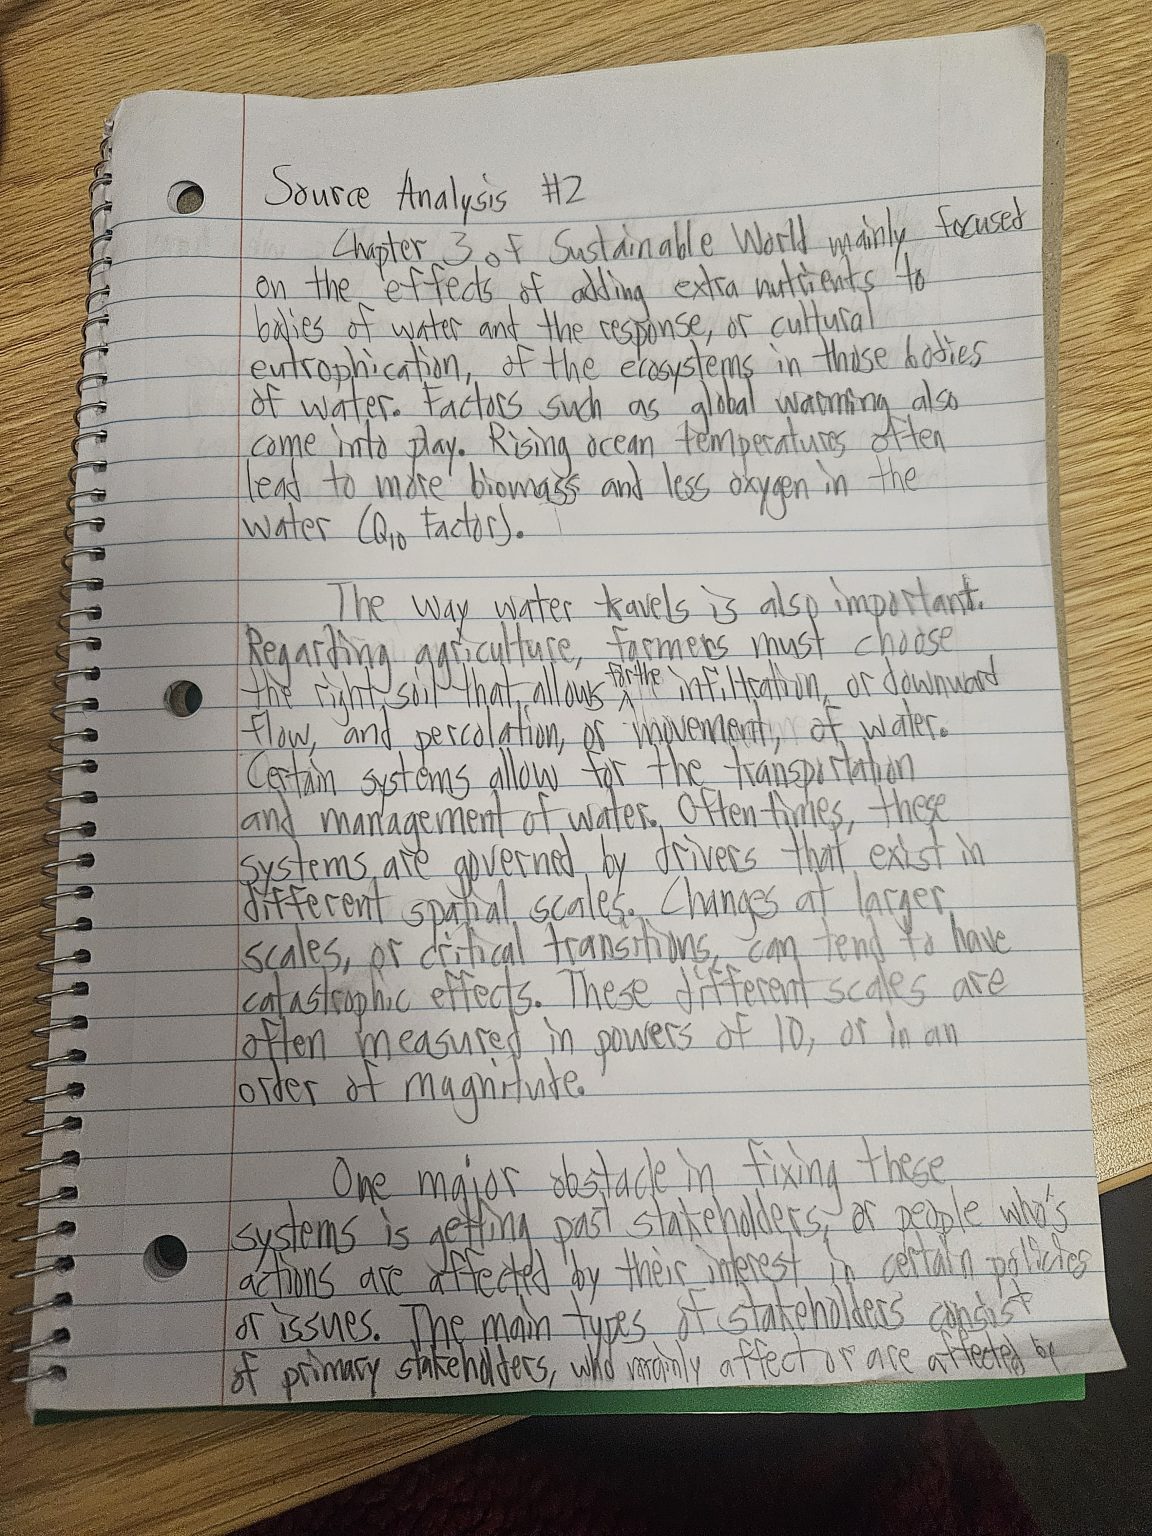 Source Analysis #2
Chapter 3 of Sustainable World mainly focused
on the effects of adding extra nutrients to
bodies of water and the response, or cultural
eutrophication, of the ecosystems in those bodies
of water. Factors such as global warming also
come into play. Rising ocean temperatures often
lead to more biomass and less oxygen in the
water (Q10 Factor).
The way water travels is also important.
Regarding agriculture, farmers must choose
the right soil that allows for the infiltration, or downward
flow, and percolation, or movement, of water.
Certain systems allow for the transportation
and management of water. Often times, these
systems are governed by drivers that exist in
different spatial scales. Changes at larger
scales, or critical transitions, can tend to have
catastrophic effects. These different scales are
often measured in powers of 10, or in an
order of magnitute.
One major obstacle in fixing these
systems is getting past stakeholders, or people who's
actions are affected by their interest in certain policies
or issues. The main types of stakeholders consist
of primary stakeholders, who mainly affect or are affected by